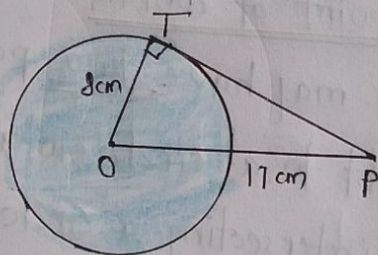 T
8cm
O
17 cm
P